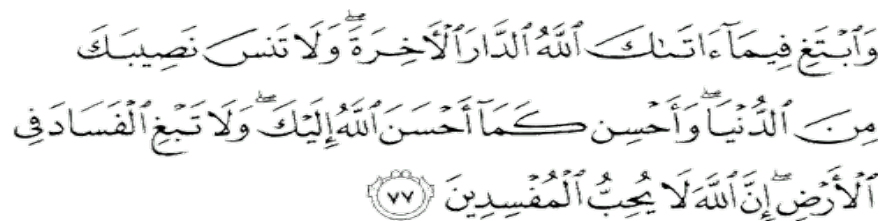 وَٱبۡتَغِ فِيمَآ ءَاتَىٰكَ ٱللَّهُ ٱلدَّارَ ٱلۡأٓخِرَةَۖ وَلَا تَنسَ نَصِيبَكَ
مِنَ ٱلدُّنۡيَاۖ وَأَحۡسِن كَمَآ أَحۡسَنَ ٱللَّهُ إِلَيۡكَۖ وَلَا تَبۡغِ ٱلۡفَسَادَ فِي
ٱلۡأَرۡضِۖ إِنَّ ٱللَّهَ لَا يُحِبُّ ٱلۡمُفۡسِدِينَ ٧٧